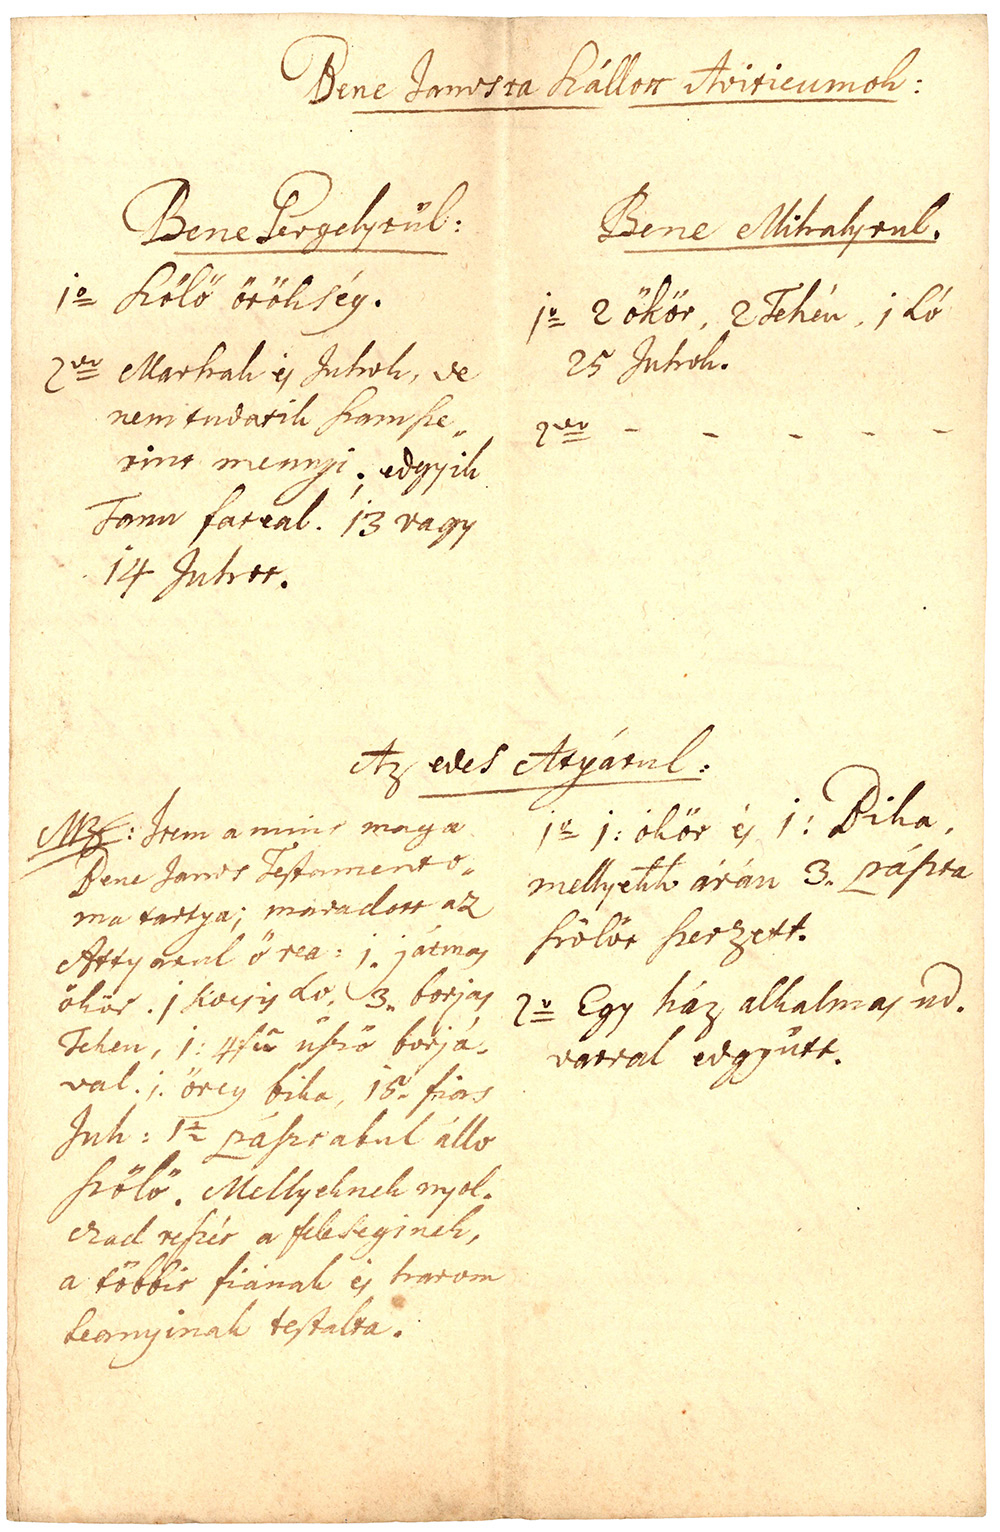 Bene Janosra szállott Aviticumok:
Bene Gergelyrül:
1o Szőlő örökség.
2do Marhak és Juhok, de
nem tudatik szam sze„
rint mennyi; edgyik
Tanu fateal. 13 vagy
14 Juhot.
Bene Mihalyrul.
1o 2 ökör, 2 Tehén, 1 Ló
25 Juhok.
2do - - - - -
Az edes Atyárul:
NB: Item a mint maga
Bene Janos Testamento„
ma tartya; maradott az
Attyarul ő rea: 1. jármas
ökör. 1 kocsis Lo, 3. borjas
Tehen, 1: 4fü üsző borjá„
val. 1. öreg bika, 15. fias
Juh: 1 pásztabul álló
szőlő. Mellyeknek nyol„
czad részét a feleseginek,
a többit fiának és harom
Leanyinak testalta.
1o 1: ökör és 1: Bika,
mellyekk árán 3. pászta
szőlőt szerzett.
2o Egy ház alkalmas ud„
varral edgyütt.